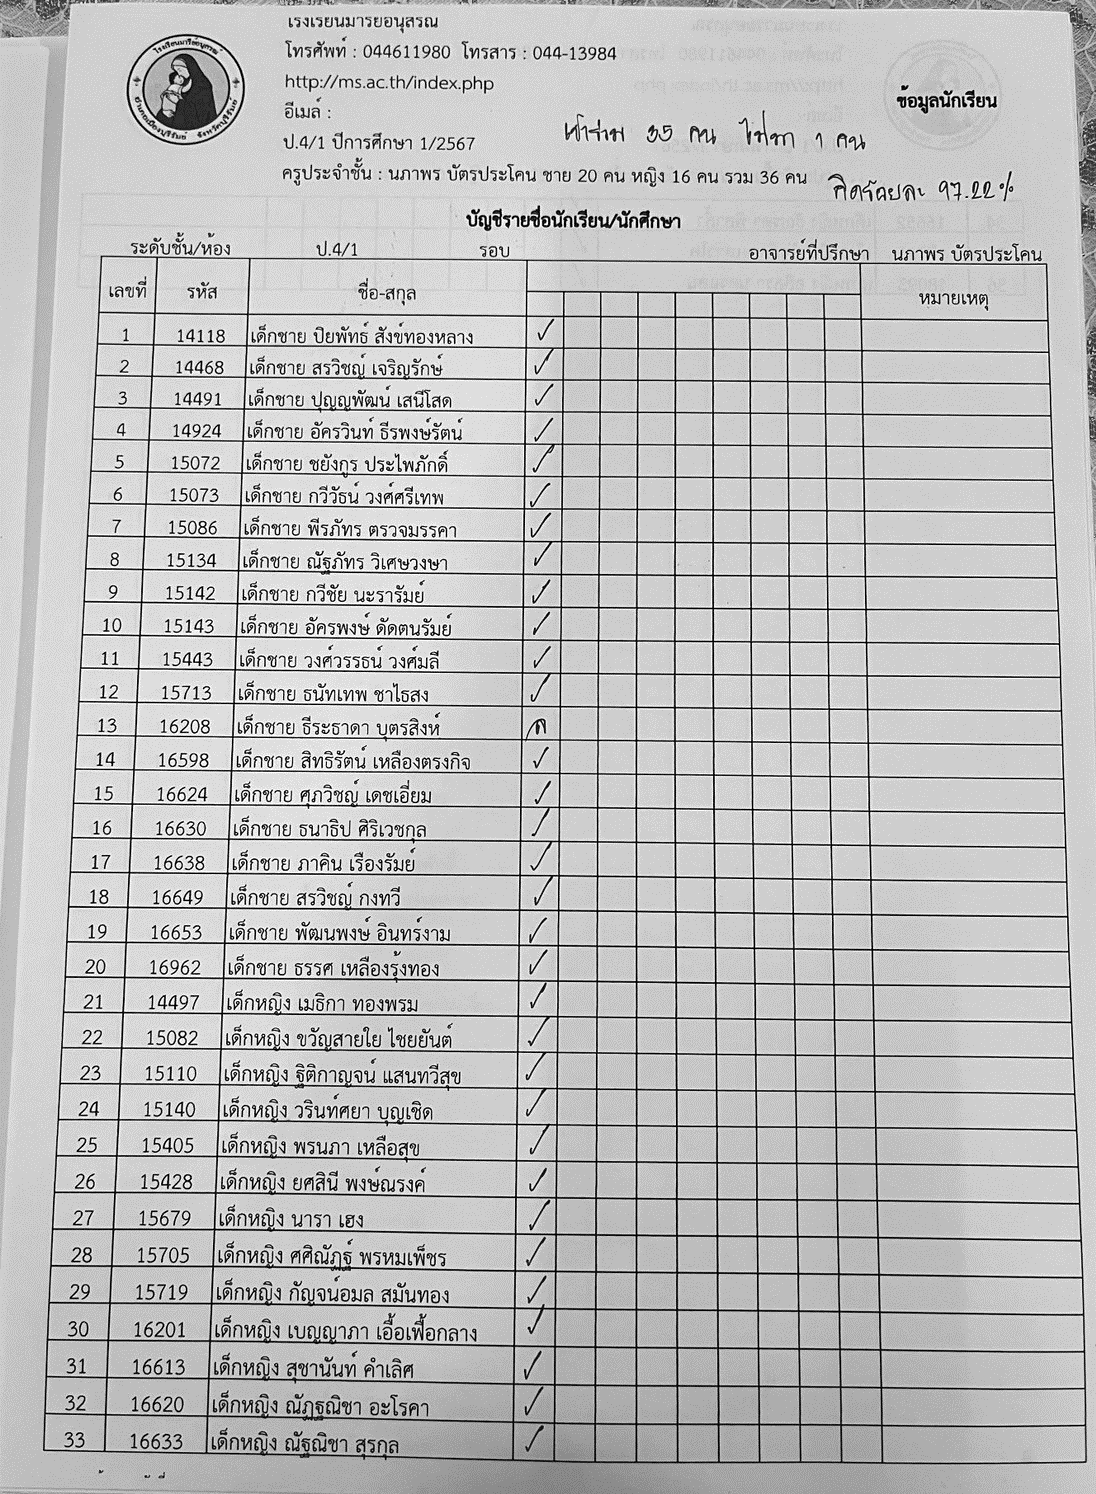 โรงเรียนมารีย์อนุสรณ์
อำเภอเมืองบุรีรัมย์ จังหวัดบุรีรัมย์
เรงเรียนมารยอนุสรณ
โทรศัพท์ : 044611980 โทรสาร : 044-13984
http://ms.ac.th/index.php
อีเมล์ :
ข้อมูลนักเรียน
ป.4/1 ปีการศึกษา 1/2567
เข้าร่วม 35 คน ไม่มา 1 คน
ครูประจำชั้น : นภาพร บัตรประโคน ชาย 20 คน หญิง 16 คน รวม 36 คน
คิดร้อยละ 97.22%
บัญชีรายชื่อนักเรียน/นักศึกษา
ระดับชั้น/ห้อง ป.4/1 รอบ อาจารย์ที่ปรึกษา นภาพร บัตรประโคน
เลขที่ รหัส ชื่อ-สกุล หมายเหตุ
1 14118 เด็กชาย ปิยพัทธ์ สังข์ทองหลาง ✓
2 14468 เด็กชาย สรวิชญ์ เจริญรักษ์ ✓
3 14491 เด็กชาย ปุญญพัฒน์ เสนีโสด ✓
4 14924 เด็กชาย อัครวินท์ ธีรพงษ์รัตน์ ✓
5 15072 เด็กชาย ชยังกูร ประไพภักดิ์ ✓
6 15073 เด็กชาย กวีวัธน์ วงศ์ศรีเทพ ✓
7 15086 เด็กชาย พีรภัทร ตรวจมรรคา ✓
8 15134 เด็กชาย ณัฐภัทร วิเศษวงษา ✓
9 15142 เด็กชาย กวีชัย นะรารัมย์ ✓
10 15143 เด็กชาย อัครพงษ์ ดัดตนรัมย์ ✓
11 15443 เด็กชาย วงศ์วรรธน์ วงศ์มลี ✓
12 15713 เด็กชาย ธนัทเทพ ชาไธสง ✓
13 16208 เด็กชาย ธีระธาดา บุตรสิงห์
14 16598 เด็กชาย สิทธิรัตน์ เหลืองตรงกิจ ✓
15 16624 เด็กชาย ศุภวิชญ์ เดชเอี่ยม ✓
16 16630 เด็กชาย ธนาธิป ศิริเวชกุล ✓
17 16638 เด็กชาย ภาคิน เรืองรัมย์ ✓
18 16649 เด็กชาย สรวิชญ์ กงทวี ✓
19 16653 เด็กชาย พัฒนพงษ์ อินทร์งาม ✓
20 16962 เด็กชาย ธรรศ เหลืองรุ้งทอง ✓
21 14497 เด็กหญิง เมธิกา ทองพรม ✓
22 15082 เด็กหญิง ขวัญสายใย ไชยยันต์ ✓
23 15110 เด็กหญิง ฐิติกาญจน์ แสนทวีสุข ✓
24 15140 เด็กหญิง วรินท์ศยา บุญเชิด ✓
25 15405 เด็กหญิง พรนภา เหลือสุข ✓
26 15428 เด็กหญิง ยศสินี พงษ์ณรงค์ ✓
27 15679 เด็กหญิง นารา เฮง ✓
28 15705 เด็กหญิง ศศิณัฏฐ์ พรหมเพ็ชร ✓
29 15719 เด็กหญิง กัญจน์อมล สมันทอง ✓
30 16201 เด็กหญิง เบญญาภา เอื้อเฟื้อกลาง ✓
31 16613 เด็กหญิง สุชานันท์ คำเลิศ ✓
32 16620 เด็กหญิง ณัฏฐณิชา อะโรคา ✓
33 16633 เด็กหญิง ณัฐณิชา สุรกุล ✓